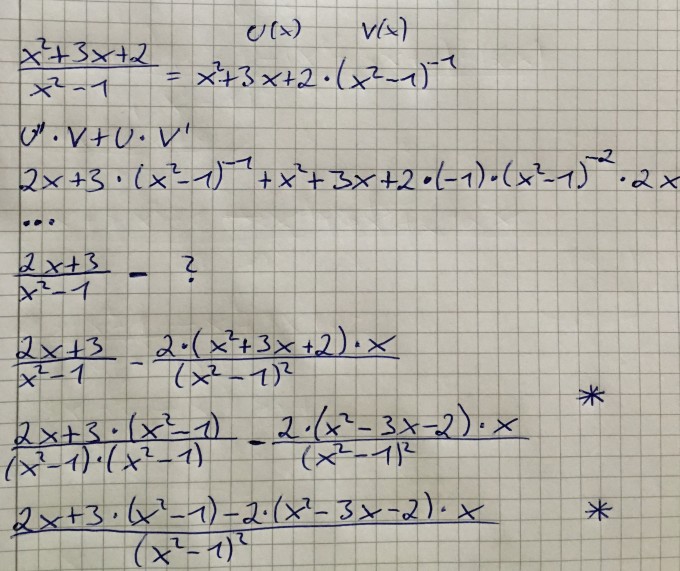 U(x) V(x)
x²+3x+2 / x²-1 = x²+3x+2·(x²-1)⁻¹
U'·V+U·V'
2x+3·(x²-1)⁻¹+x²+3x+2·(-1)·(x²-1)⁻²·2x
...
2x+3 / x²-1 - ?
2x+3 / x²-1 - 2·(x²+3x+2)·x / (x²-1)²
*
2x+3·(x²-1) / (x²-1)·(x²-1) - 2·(x²-3x-2)·x / (x²-1)²
2x+3·(x²-1)-2·(x²-3x-2)·x / (x²-1)² *